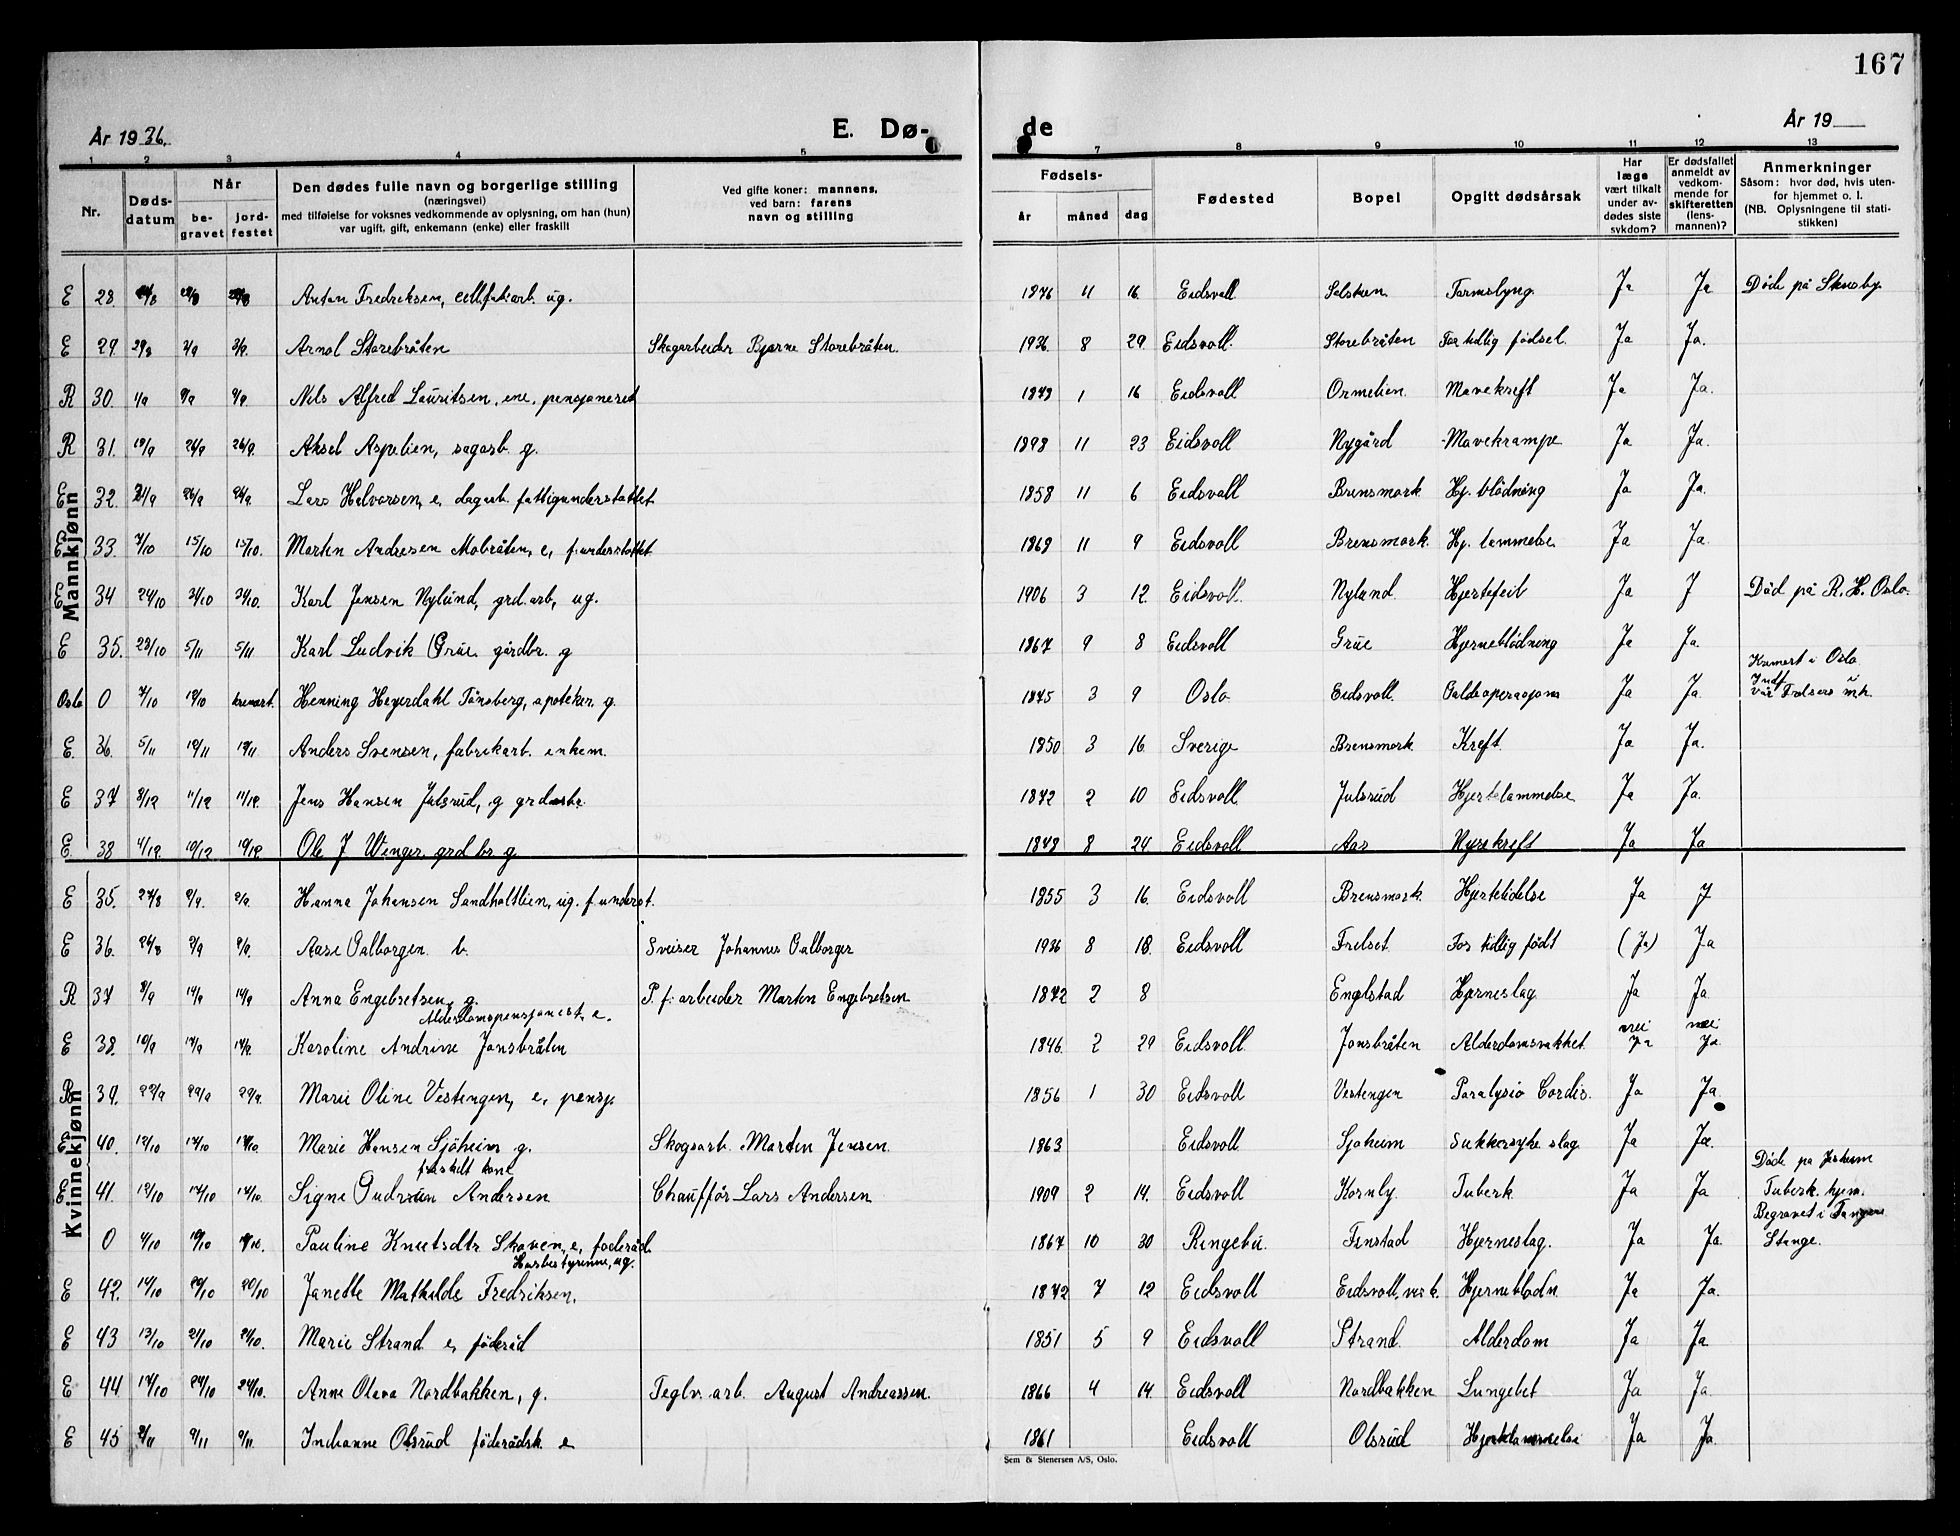 167
År 1936.
E. Dø-
de
År 19
1 2 3 4 5 7 8 9 10 11 12 13
Nr.
Døds-
datum
Når
be-
gravet
jord-
festet
Den dødes fulle navn og borgerlige stilling
(næringsvei)
med tilføielse for voksnes vedkommende av oplysning, om han (hun)
var ugift, gift, enkemann (enke) eller fraskilt
Ved gifte koner: mannens,
ved barn: farens
navn og stilling
Fødsels-
år måned dag
Fødested
Bopel
Opgitt dødsårsak
Har
læge
vært tilkalt
under av-
dødes siste
sykdom?
Er dødsfallet
anmeldt av
vedkom-
mende for
skifteretten
(lens-
mannen)?
Anmerkninger
Såsom: hvor død, hvis uten-
for hjemmet o. l.
(NB. Oplysningene til stati-
stikken)
Mannkjønn
E 28 Anton Fredriksen, cell.fab.arb. ug. 1876 11 16. Eidsvoll Ja Ja Døde på Stensby.
E 29. 29/8 2/9 2/9. Arnol Storebråten Skogarbeider Bjarne Storebråten. 1936. 8 29. Eidsvoll. Storebråten For tidlig fødsel. Ja Ja.
R 30. 1/9 9/9 9/9. Nils Alfred Lauritsen, ene, pensjoneret 1 16 Eidsvoll Ormelien. Mavekreft Ja Ja.
R 31. 19/9 26/9 26/9. Aksel Aspelien, sagarb. g. 1898 11 23 Eidsvoll Nygård Mavekrampe Ja Ja.
E 32. 21/9 26/9 26/9. Lars Halvorsen, e, dagarb. fattigunderstøttet 1858 11 6 Eidsvoll Brensmork. Hj. blødning Ja Ja.
E 33. 7/10 15/10 15/10. Martin Andresen Mobråten, e, f.understøttet 1869 11 9 Eidsvoll Brensmork. Hj. lammelse Ja Ja.
E 34 24/10 31/10 31/10. Karl Jensen Nylund, grd.arb, ug. 1906 3 12. Eidsvoll. Nyland. Hjertefeil Ja J Død på R.H. Oslo.
E 35. 29/10 5/11 5/11 Karl Ludvik Grue gårdbr. g 1867 9 8 Eidsvoll Grue Hjerneblødning Ja Ja.
Kremert i Oslo.
Oslo 0 7/10 12/10 kremert. Henning Heyerdahl Tønsberg, apoteker. g. 1875 3 9 Oslo Eidsvoll. Galdeoperasjons Ja Ja.
E. 36. 5/11 12/11 12/11. Anders Svensen, fabrikarb. enkem. 1850 3 16 Sverige Brensmork. Kreft. Ja Ja.
E 37 8/12 11/12 11/12. Jens Hansen Julsrud, g 1872 2 10 Eidsvoll Julsrud Hjertelammelse Ja Ja.
E. 38 11/12. 19/12 19/12. Ole J Wenger grd br g 8 24 Eidsvoll Aas Nyrekreft Ja Ja
Kvinnekjønn
E 35. 27/8 2/9. 2/9. Hanna Johansen Sandholtlien, ug. f.underst. 1855 3 16. Eidsvoll Brensmork. Hjertelidelse Ja J
E 36. 24/8 2/9 2/9. Aase Galborgen b. Sveiser Johannes Galborger 1936 8 18. Eidsvoll Frelset For tidlig født (Ja) Ja
R 37 8/9 14/9 14/9 Anna Engebretsen, g. P. f. arbeider Martin Engebretsen 1872 2 8 Engelstad Hjerneslag Ja Ja
Alderdomspensjonist, e.
nei nei
E 38. 10/9 17/9 17/9. Karoline Andrine Jonsbråten 1846. 2 29 Eidsvoll. Jonsbråten Alderdomsvakhet. Ja Ja
R 39. 22/9 29/9 29/9. Marie Oline Vestengen, e, pensj. 1856 1 30 Eidsvoll Vestengen Paralysis Cordis. Ja Ja.
E. 40. 12/10 17/10 17/10. Marie Hansen Sjøheim g. Skogsarb. Martin Jensen. 1863 Eidsvoll Sjøheim Sukkersyke slag Ja Ja.
fraskilt kone
Døde på Jesheim
E. 41. 12/10 17/10 17/10. Signe Gudrun Andersen Chauffør Lars Andersen 1909 2 14. Eidsvoll Kornby. Tuberk. Ja Ja Tuberk. hjem.
Begravet i Tangen
0 4/10 10/10 10/10. Pauline Knutsdtr. Skoven, e, føderåd. 1867 10 30 Ringebu. Finstad Hjerneslag. Ja Ja. Stange.
Husbestyrinne, ug.
E 42. 14/10 20/10 20/10 Janette Mathilde Fredriksen. 1872 7 12 Eidsvoll Eidsvoll, verk. Hjerneblødn. Ja Ja.
E 43 13/10 21/10 21/10. Marie Strand e, føderåd 1851 5 9 Eidsvoll Strand. Alderdom Ja Ja
E 44 17/10 24/10 24/10. Anne Olava Nordbakken, g. Teglv. arb. August Andreassen. 1866 4 14. Eidsvoll Nordbakken Lungebet Ja Ja.
E 45 2/11 9/11 9/11. Indianne Olsrud føderådsk. e 1861 Eidsvoll Olsrud Hjertelammelse Ja Ja.
Sem & Stenersen A/S, Oslo.